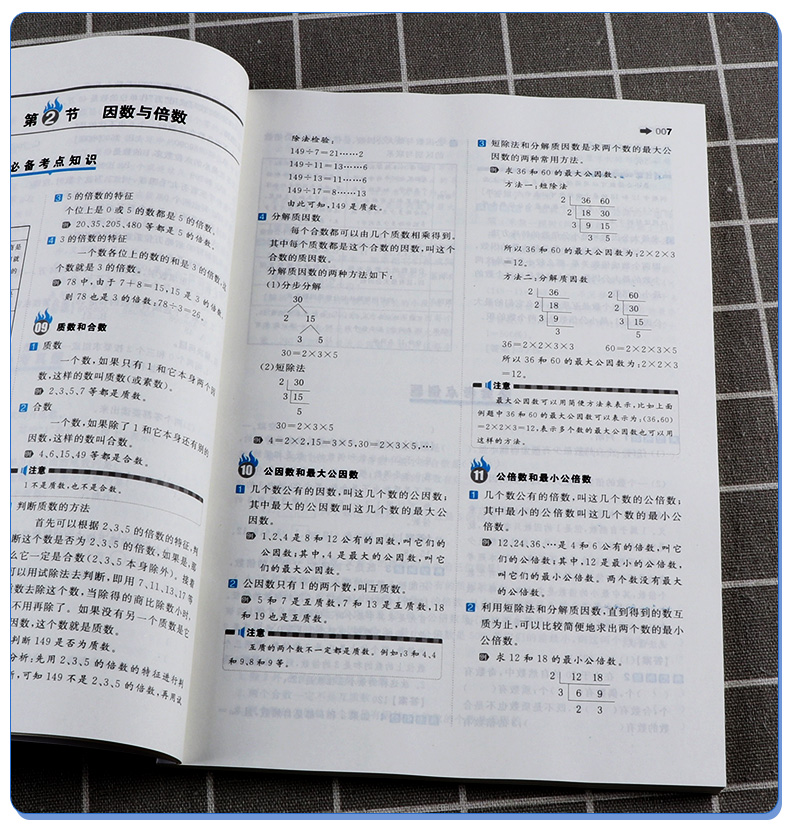 第2节 因数与倍数
必备考点知识
3 5的倍数的特征
个位上是0或5的数都是5的倍数。
例 20、35、205、480等都是5的倍数。
4 3的倍数的特征
一个数各位上的数的和是3的倍数,这
个数就是3的倍数。
例 78中,由于7+8=15,15是3的倍数,
则78也是3的倍数;78÷3=26。
09 质数和合数
1 质数
一个数,如果只有1和它本身两个因
数,这样的数叫质数(或素数)。
例 2、3、5、7等都是质数。
2 合数
一个数,如果除了1和它本身还有别的
因数,这样的数叫合数。
例 4、6、15、49等都是合数。
注意
1不是质数,也不是合数。
判断质数的方法
首先可以根据2、3、5的倍数的特征,判
断这个数是否为2、3、5的倍数,如果是,那
么它一定是合数(2、3、5本身除外)。接着
可以用试除法去判断,即用7、11、13、17等
数去除这个数,当除得的商比除数小时,
不用再除了。如果没有另一个质数是它
因数,这个数就是质数。
判断149是否为质数。
分析:先用2、3、5的倍数的特征进行判
断,可知149不是2、3、5的倍数,再用试
除法检验:
149÷7=21……2
149÷11=13……6
149÷13=11……6
149÷17=8……13
由此可知,149是质数。
4 分解质因数
每个合数都可以由几个质数相乘得到。
其中每个质数都是这个合数的因数,叫这个
合数的质因数。
分解质因数的两种方法如下:
(1)分步分解
30
2 15
3 5
30=2×3×5
(2)短除法
2 30
3 15
5
30=2×3×5
例 4=2×2,15=3×5,30=2×3×5,…
10 公因数和最大公因数
1 几个数公有的因数,叫这几个数的公因数;
其中最大的公因数叫这几个数的最大公
因数。
例 1、2、4是8和12公有的因数,叫它们的
公因数;其中,4是最大的公因数,叫它
们的最大公因数。
2 公因数只有1的两个数,叫互质数。
例 5和7是互质数,7和13是互质数,18
和19也是互质数。
注意
互质的两个数不一定都是质数。例如:3和4、4
和9、8和9等。
007
3 短除法和分解质因数是求两个数的最大公
因数的两种常用方法。
例 求36和60的最大公因数。
方法一:短除法
2 36 60
2 18 30
3 9 15
3 5
所以36和60的最大公因数为:2×2×3
=12。
方法二:分解质因数
2 36 2 60
2 18 2 30
3 9 3 15
3 5
36=2×2×3×3 60=2×2×3×5
所以36和60的最大公因数为:2×2×3
=12。
注意
最大公因数可以用简便方法来表示,比如上面
例题中36和60的最大公因数可以表示为:(36,60)
=2×2×3=12,表示多个数的最大公因数也可以用
这样的方法。
11 公倍数和最小公倍数
1 几个数公有的倍数,叫这几个数的公倍数;
其中最小的公倍数叫这几个数的最小公
倍数。
例 12、24、36、…是4和6公有的倍数,叫它
们的公倍数;其中,12是最小的公倍数,
叫它们的最小公倍数。两个数没有最大
的公倍数。
2 利用短除法和分解质因数,直到得到的数互
质为止,可以比较简便地求出两个数的最小
公倍数。
例 求12和18的最小公倍数。
2 12 18
3 6 9
2 3